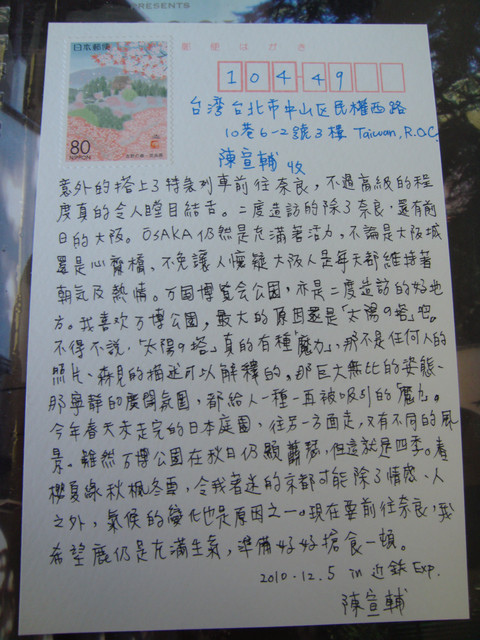 PRESENTS
日本郵便
80
NIPPON
郵便はがき
10449
台湾台北市中山区民權西路
10巷6-2號3樓 Taiwan, R.O.C.
陳宣輔 收
意外的搭上了特急列車前往奈良，不過高級的程
度真的令人瞠目結舌。二度造訪的除了奈良，還有前
日的大阪。OSAKA仍然是充滿著活力，不論是大阪城
還是心齋橋，不免讓人懷疑大阪人是每天都維持著
朝氣及熱情。万国博覧会公園，亦是二度造訪的好地
方。我喜欢万博公園，最大的原因還是「太陽の塔」吧。
不得不說，「太陽の塔」真的有種「魔力」，那不是任何人的
照片、森見的描述可以解釋的。那巨大無比的姿態、
那寧靜的廣闊氛圍，都給人一種一再被吸引的「魔力」。
今年春天未走完的日本庭園，往另一方面走，又有不同的風
景。雖然万博公園在秋日仍顯蕭瑟，但這就是四季。春
櫻夏綠秋楓冬雪，令我著迷的京都可能除了情感、人
之外，氣候的變化也是原因之一。現在要前往奈良，我
希望鹿仍是充滿生氣，準備好好搶食一頓。
2010.12.5 in 近鉄 Exp.
陳宣輔